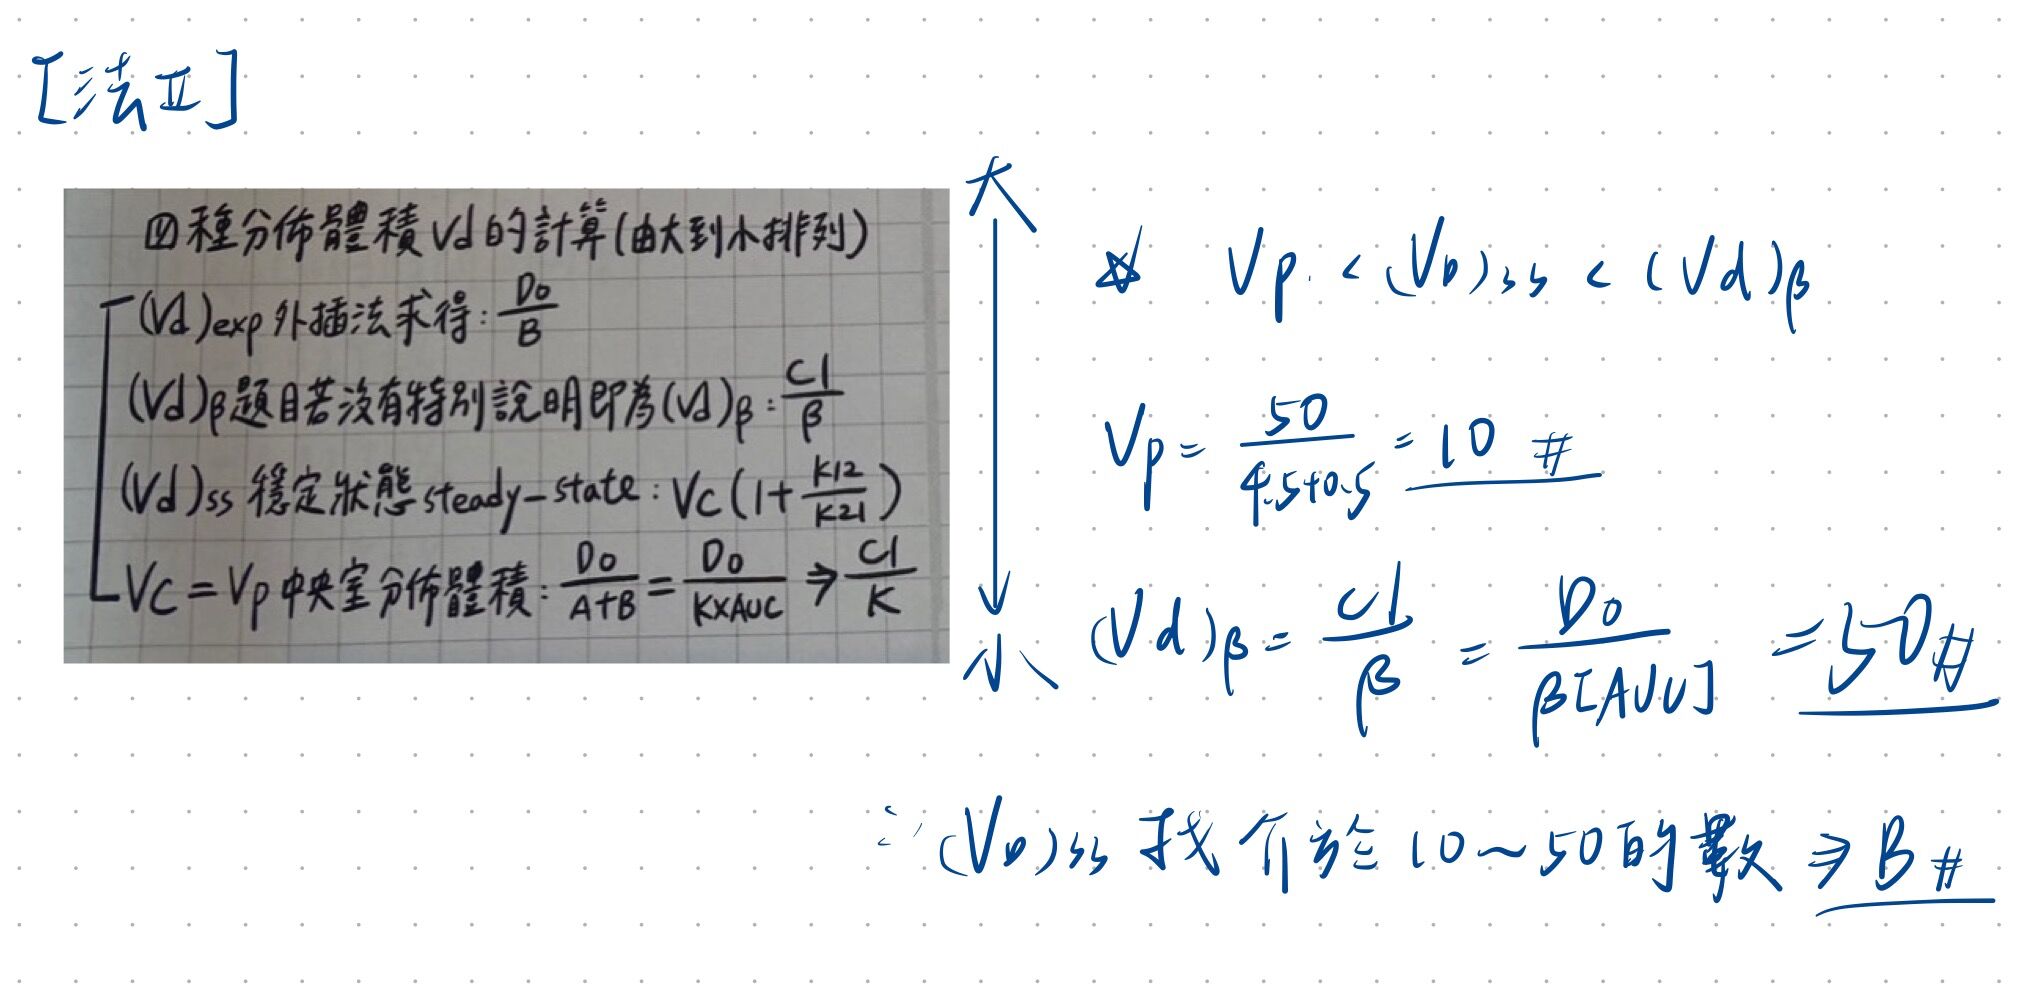 [法Ⅱ]
四種分佈體積Vd的計算(由大到小排列)
(Vd)exp 外插法求得: D0/B
(Vd)β題目若沒有特別說明即為(Vd)β: Cl/β
(Vd)ss 穩定狀態 steady-state: Vc(1+K12/K21)
Vc=Vp中央室分佈體積: D0/A+B = D0/K×AUC ⇒ Cl/K
大
小
☆ Vp < (VD)ss < (Vd)β
Vp = 50/4.5+0.5 = 10 #
(Vd)β = Cl/β = D0/β[AUC] = 50#
∴ (VD)ss 找介於10~50的數 ⇒ B #